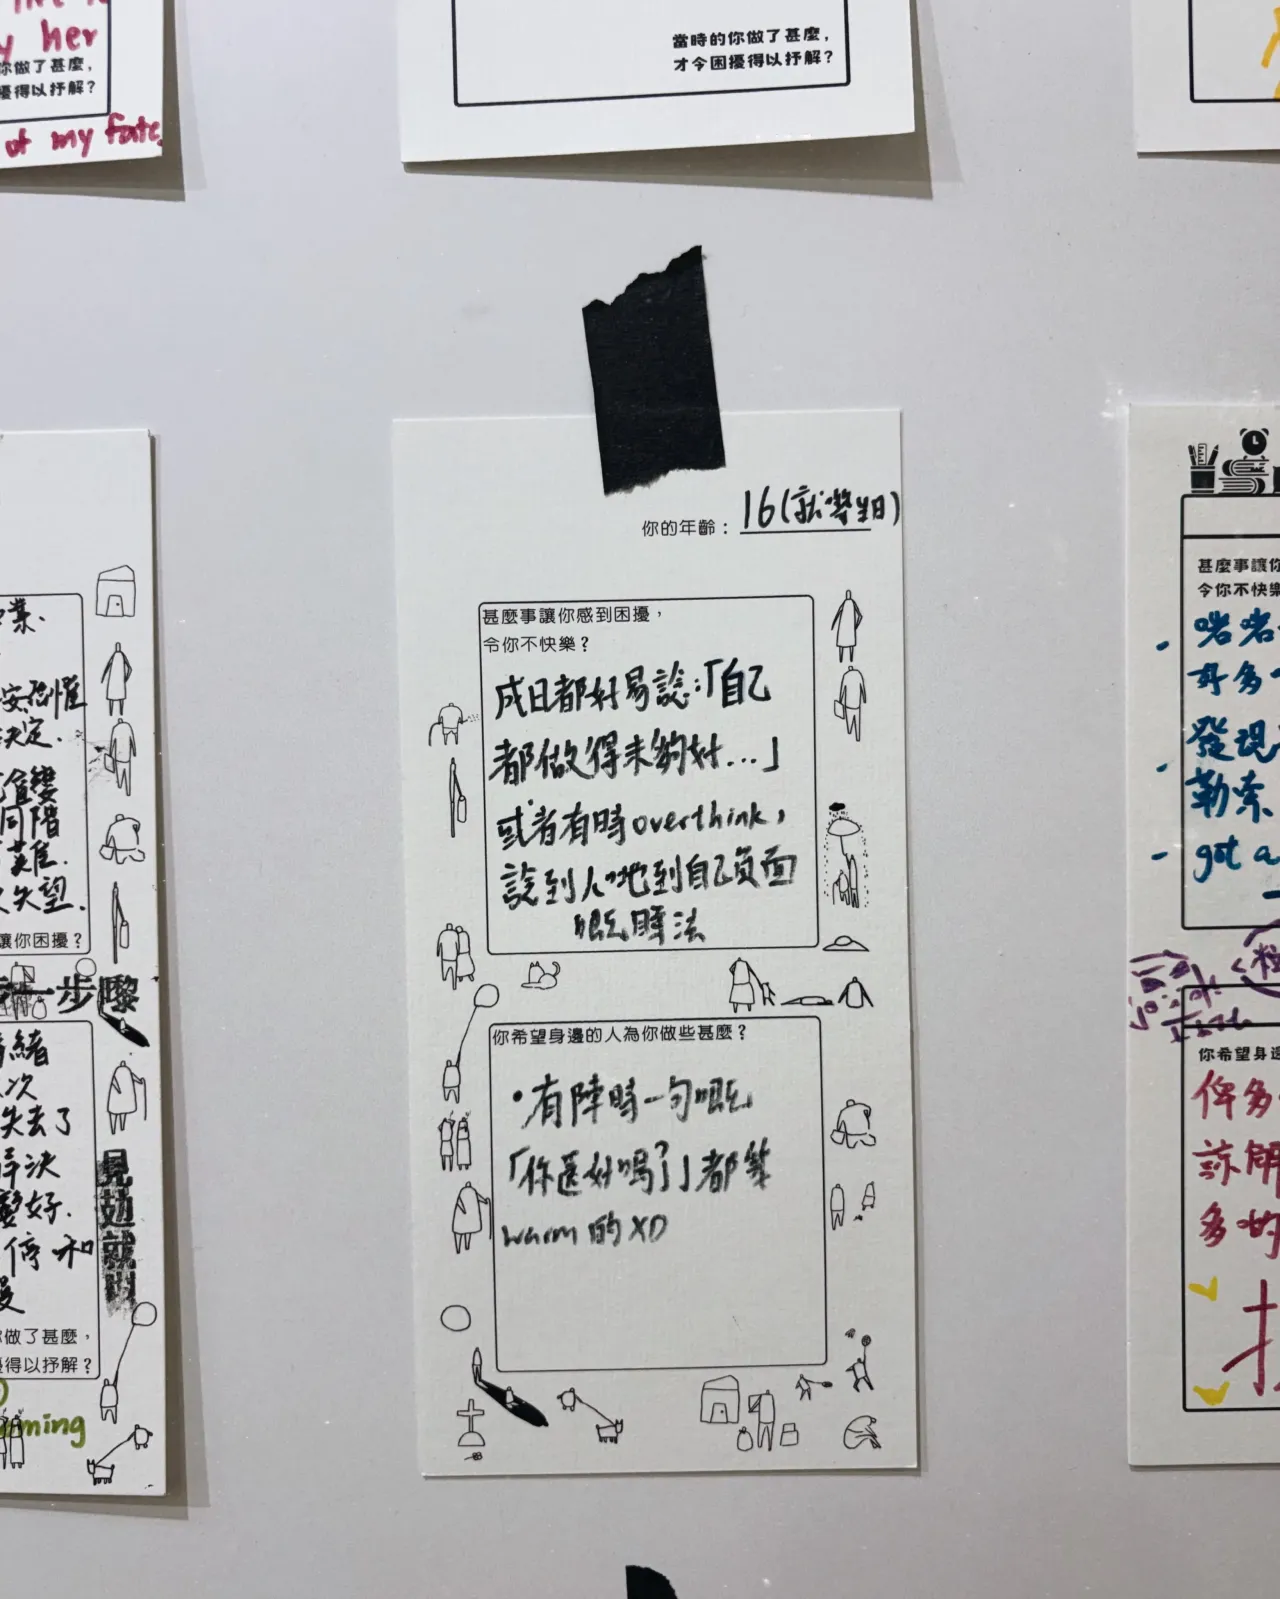 y her
你做了甚麼，
擾得以抒解？
of my fate.
當時的你做了甚麼，
才令困擾得以抒解？
業.
決定.
同階
難.
失望.
讓你困擾？
一步嚟
緒
次
失去了
解決
變好.
停 和
你做了甚麼，
擾得以抒解？
ming
你的年齡： 16(就嚟生日)
甚麼事讓你感到困擾，
令你不快樂？
成日都好易諗:「自己
都做得未夠好...」
或者有時overthink，
諗到人哋到自己負面
嘅睇法
你希望身邊的人為你做些甚麼？
•有陣時一句嘅
「你還好嗎？」都算
warm 的 XD
甚麼事讓你
令你不快樂
- 啱啱
好多
- 發現
勒索
- got a
你希望身邊
俾多
諒
多啲